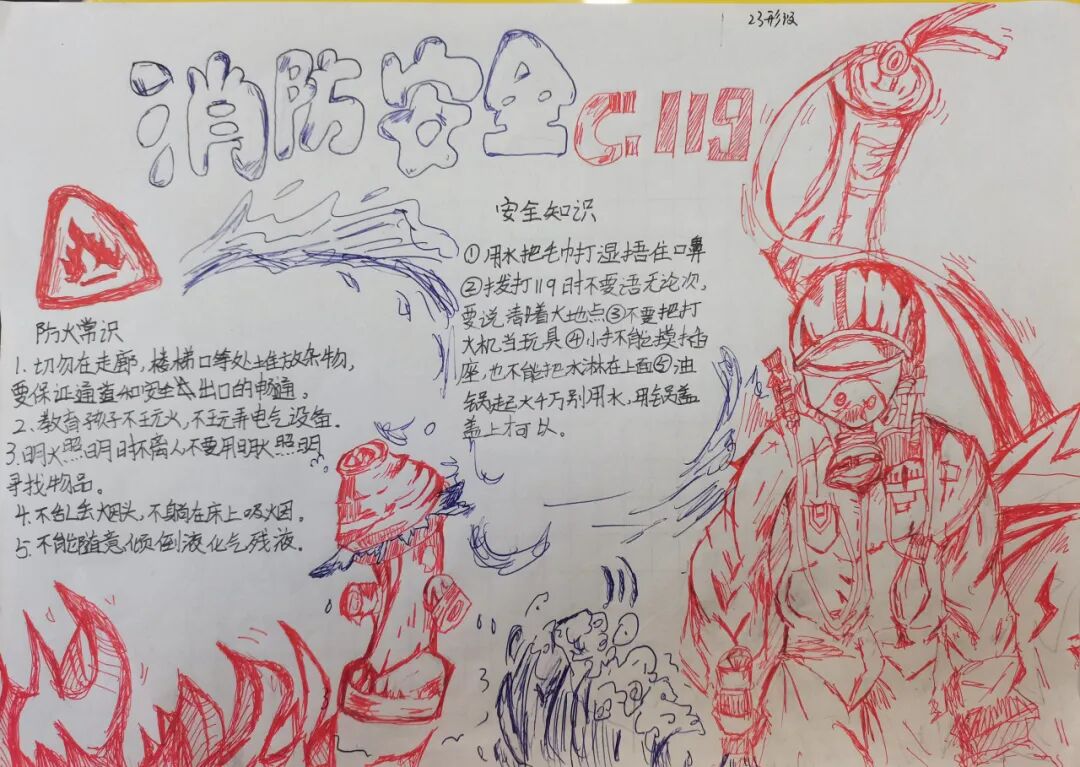 23形设
消防安全 C:119
防火常识
1.切勿在走廊,楼梯口等处堆放杂物,
要保证通道和安全出口的畅通。
2、教育孩子不玩火,不玩弄电气设备。
3.明火照明时不离人不要用明火照明
寻找物品。
4.不乱丢烟头,不躺在床上吸烟。
5.不能随意倾倒液化气残液。
安全知识
①用水把毛巾打湿捂住口鼻
②拨打119时不要语无论次,
要说清着火地点③不要把打
火机当玩具④小手不能摸插
座,也不能把水淋在上面⑤油
锅起火千万别用水,用锅盖
盖上才可以。